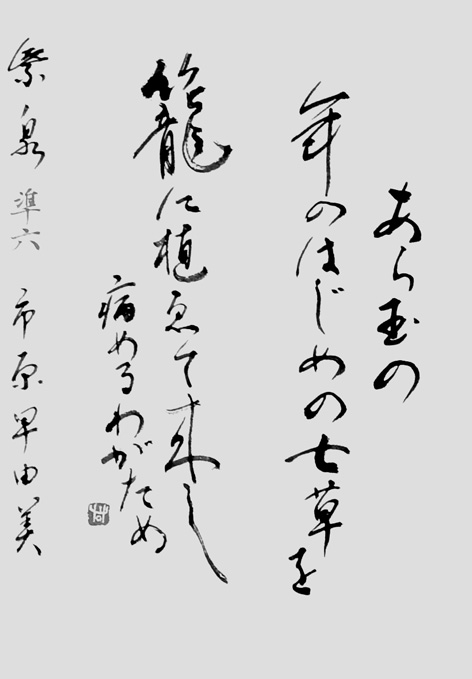 あら玉の
年のはじめの七草を
籠に植ゑて来し
病めるわがため
紫泉 準六 市原早由美